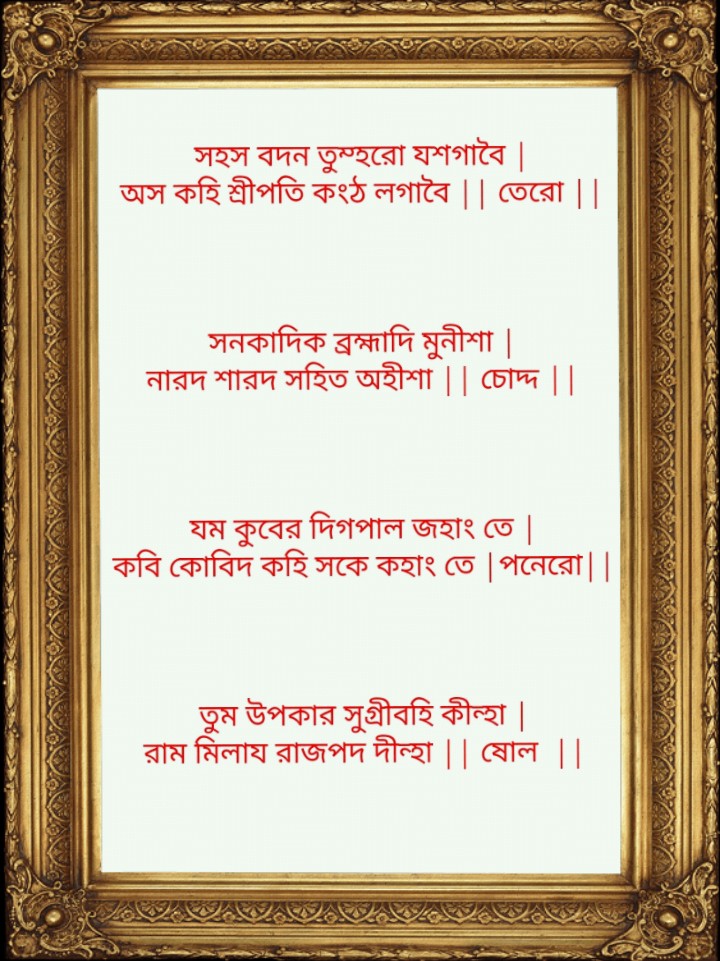 সহস বদন তুম্হরো যশগাবৈ |
অস কহি শ্রীপতি কংঠ লগাবৈ || তেরো ||
সনকাদিক ব্রহ্মাদি মুনীশা |
নারদ শারদ সহিত অহীশা || চোদ্দ ||
যম কুবের দিগপাল জহাং তে |
কবি কোবিদ কহি সকে কহাং তে |পনেরো||
তুম উপকার সুগ্রীবহি কীন্হা |
রাম মিলায রাজপদ দীন্হা || ষোল ||